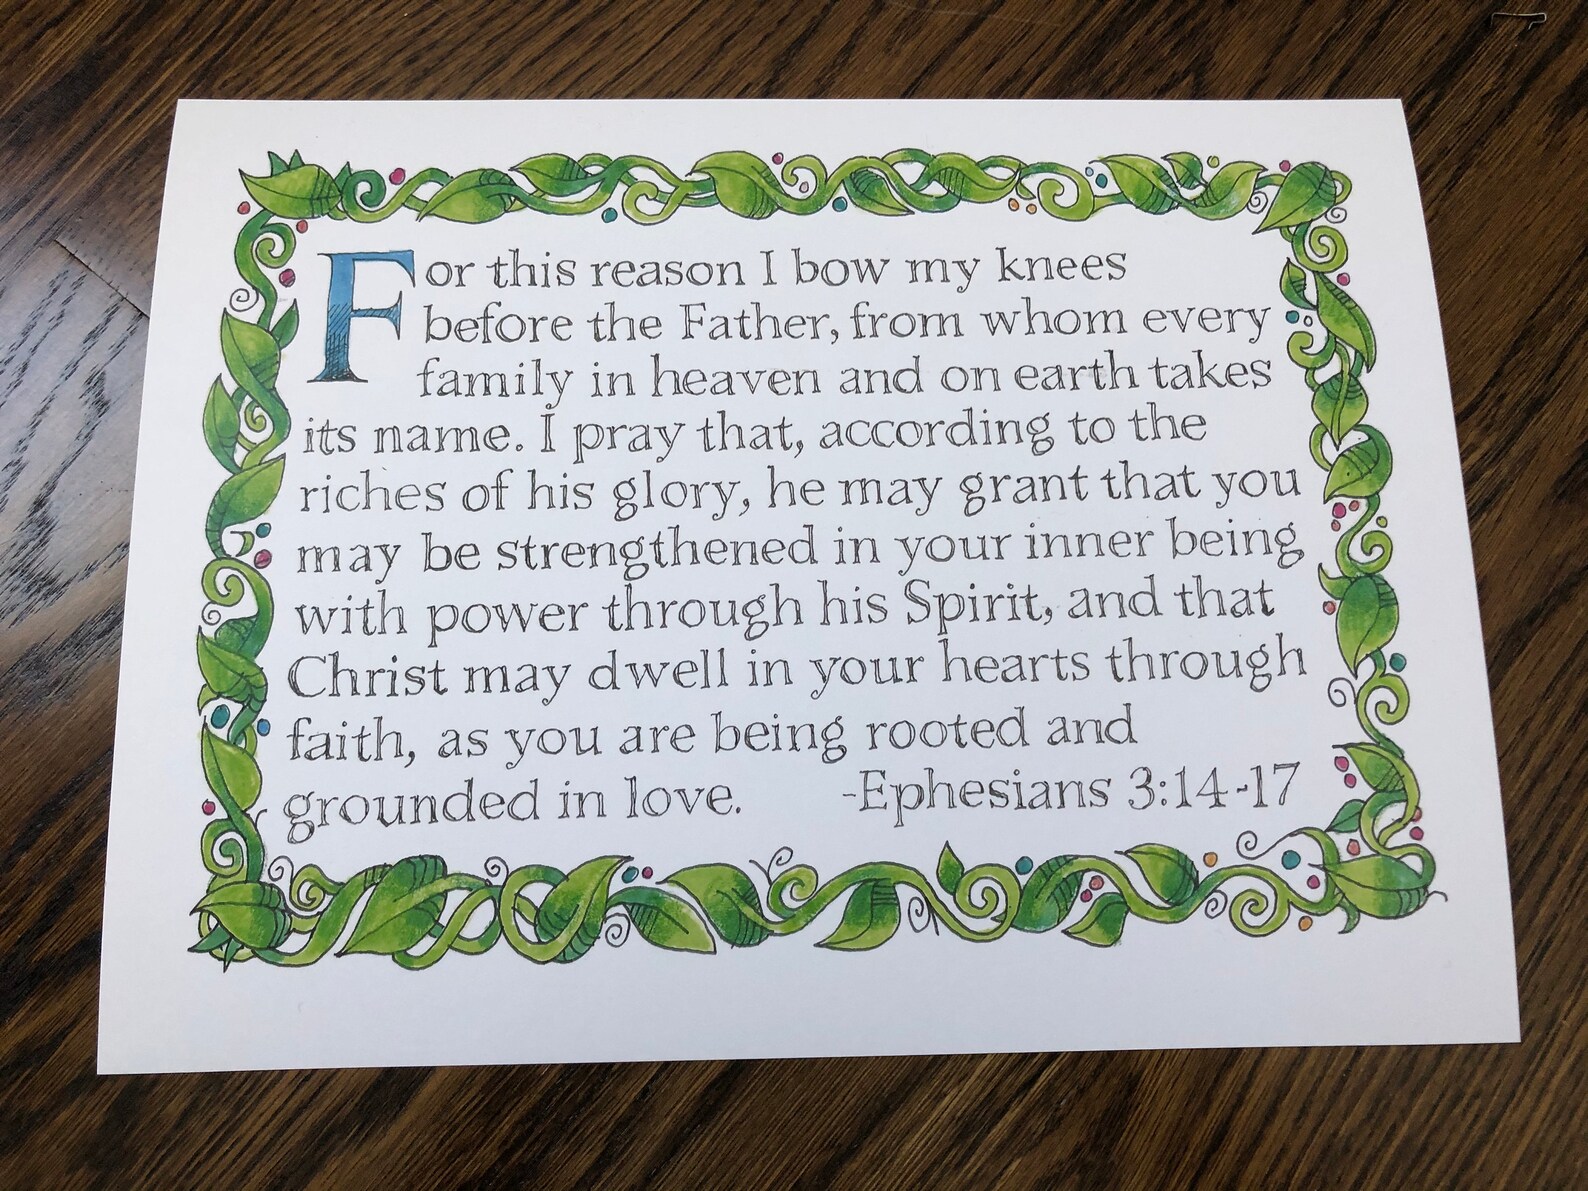 For this reason I bow my knees
before the Father, from whom every
family in heaven and on earth takes
its name. I pray that, according to the
riches of his glory, he may grant that you
may be strengthened in your inner being
with power through his Spirit, and that
Christ may dwell in your hearts through
faith, as you are being rooted and
grounded in love. -Ephesians 3:14-17